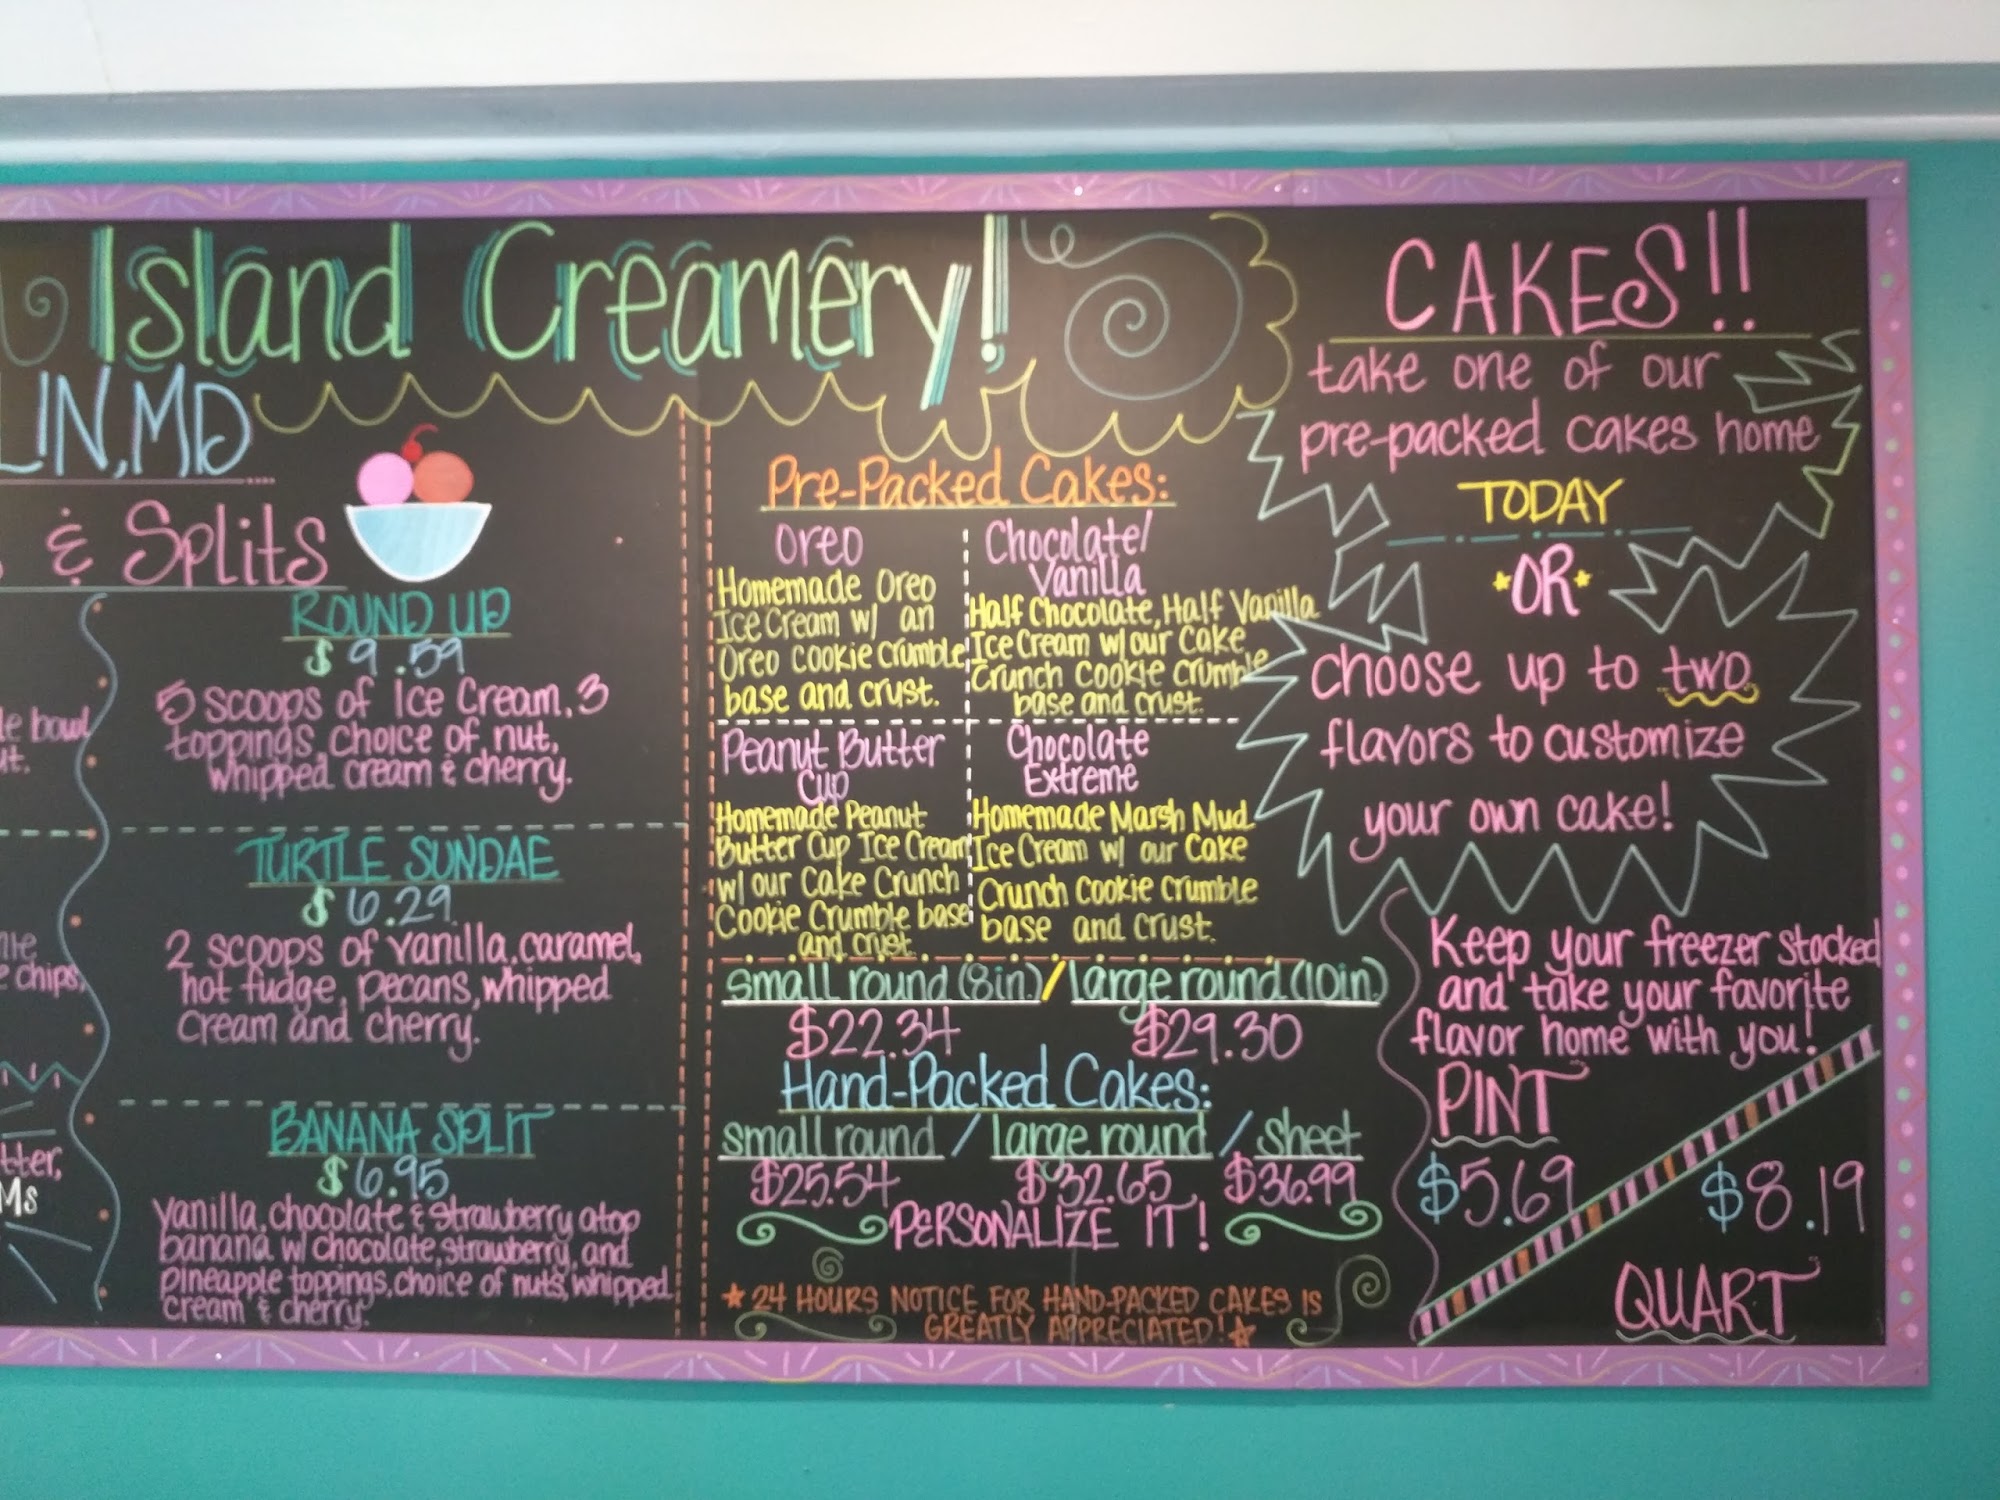 Island Creamery!
LIN, MD
& Splits
le bowl
chips,
tter,
Ms
ROUND UP
$9.59
5 scoops of Ice Cream, 3
toppings, choice of nut,
whipped cream & cherry.
TURTLE SUNDAE
$6.29
2 scoops of vanilla, caramel,
hot fudge, pecans, whipped
cream and cherry.
BANANA SPLIT
$6.95
vanilla, chocolate & strawberry atop
banana w/ chocolate, strawberry, and
pineapple toppings, choice of nuts, whipped
cream & cherry.
Pre-Packed Cakes:
Oreo
Homemade Oreo
Ice Cream w/ an
Oreo cookie crumble
base and crust.
Chocolate/
Vanilla
Half Chocolate, Half Vanilla
Ice Cream w/ our Cake
Crunch Cookie Crumble
base and crust.
Peanut Butter
Cup
Homemade Peanut
Butter Cup Ice Cream
w/ our Cake Crunch
Cookie Crumble base
and crust.
Chocolate
Extreme
Homemade Marsh Mud
Ice Cream w/ our Cake
Crunch Cookie Crumble
base and crust.
small round (8in.) / large round (10in.)
$22.34 $29.30
Hand-Packed Cakes:
small round / large round / sheet
$25.54 $32.65 $36.99
PERSONALIZE IT!
24 HOURS NOTICE FOR HAND-PACKED CAKES IS
GREATLY APPRECIATED!
CAKES!!
take one of our
pre-packed cakes home
TODAY
OR
choose up to two
flavors to customize
your own cake!
Keep your freezer stocked
and take your favorite
flavor home with you!
PINT
$5.69
$8.19
QUART